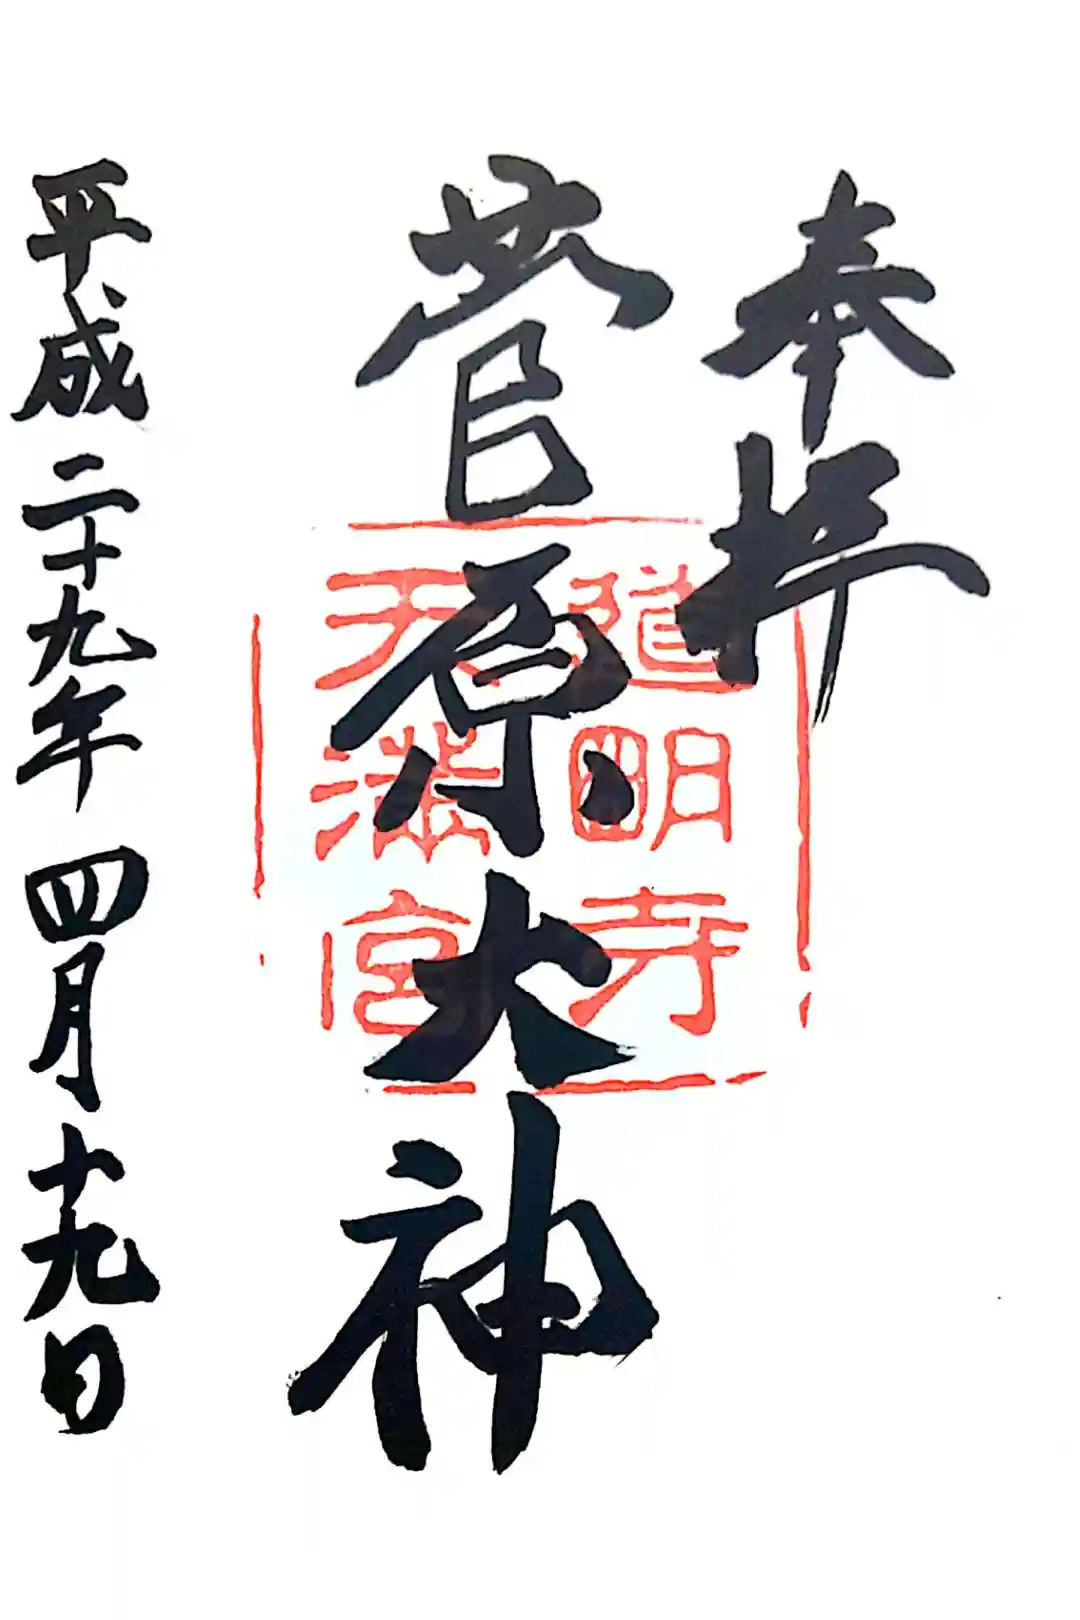 奉拝
菅原大神
道明寺
天満宮
平成二十九年四月十九日